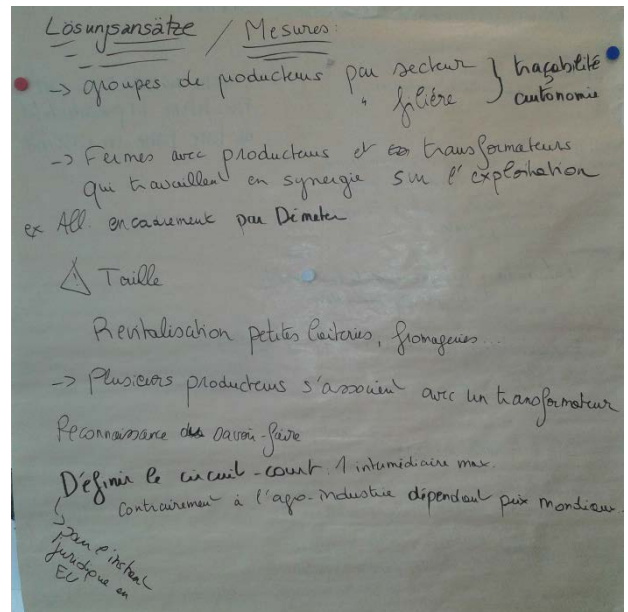 Lösungsansätze / Mesures:
-> groupes de producteurs par secteur } traçabilité
" filière } autonomie
-> Fermes avec producteurs et transformateurs
qui travaillent en synergie sur l'exploitation
ex All. encadrement par Démeter
⚠ Taille
Revitalisation petites laiteries, fromageries...
-> Plusieurs producteurs s'associent avec un transformateur
Reconnaissance du savoir-faire
Définir le circuit-court: 1 intermédiaire max.
contrairement à l'ago-industrie dépendant prix mondiaux.
-> pour l'instant
juridique en
EU